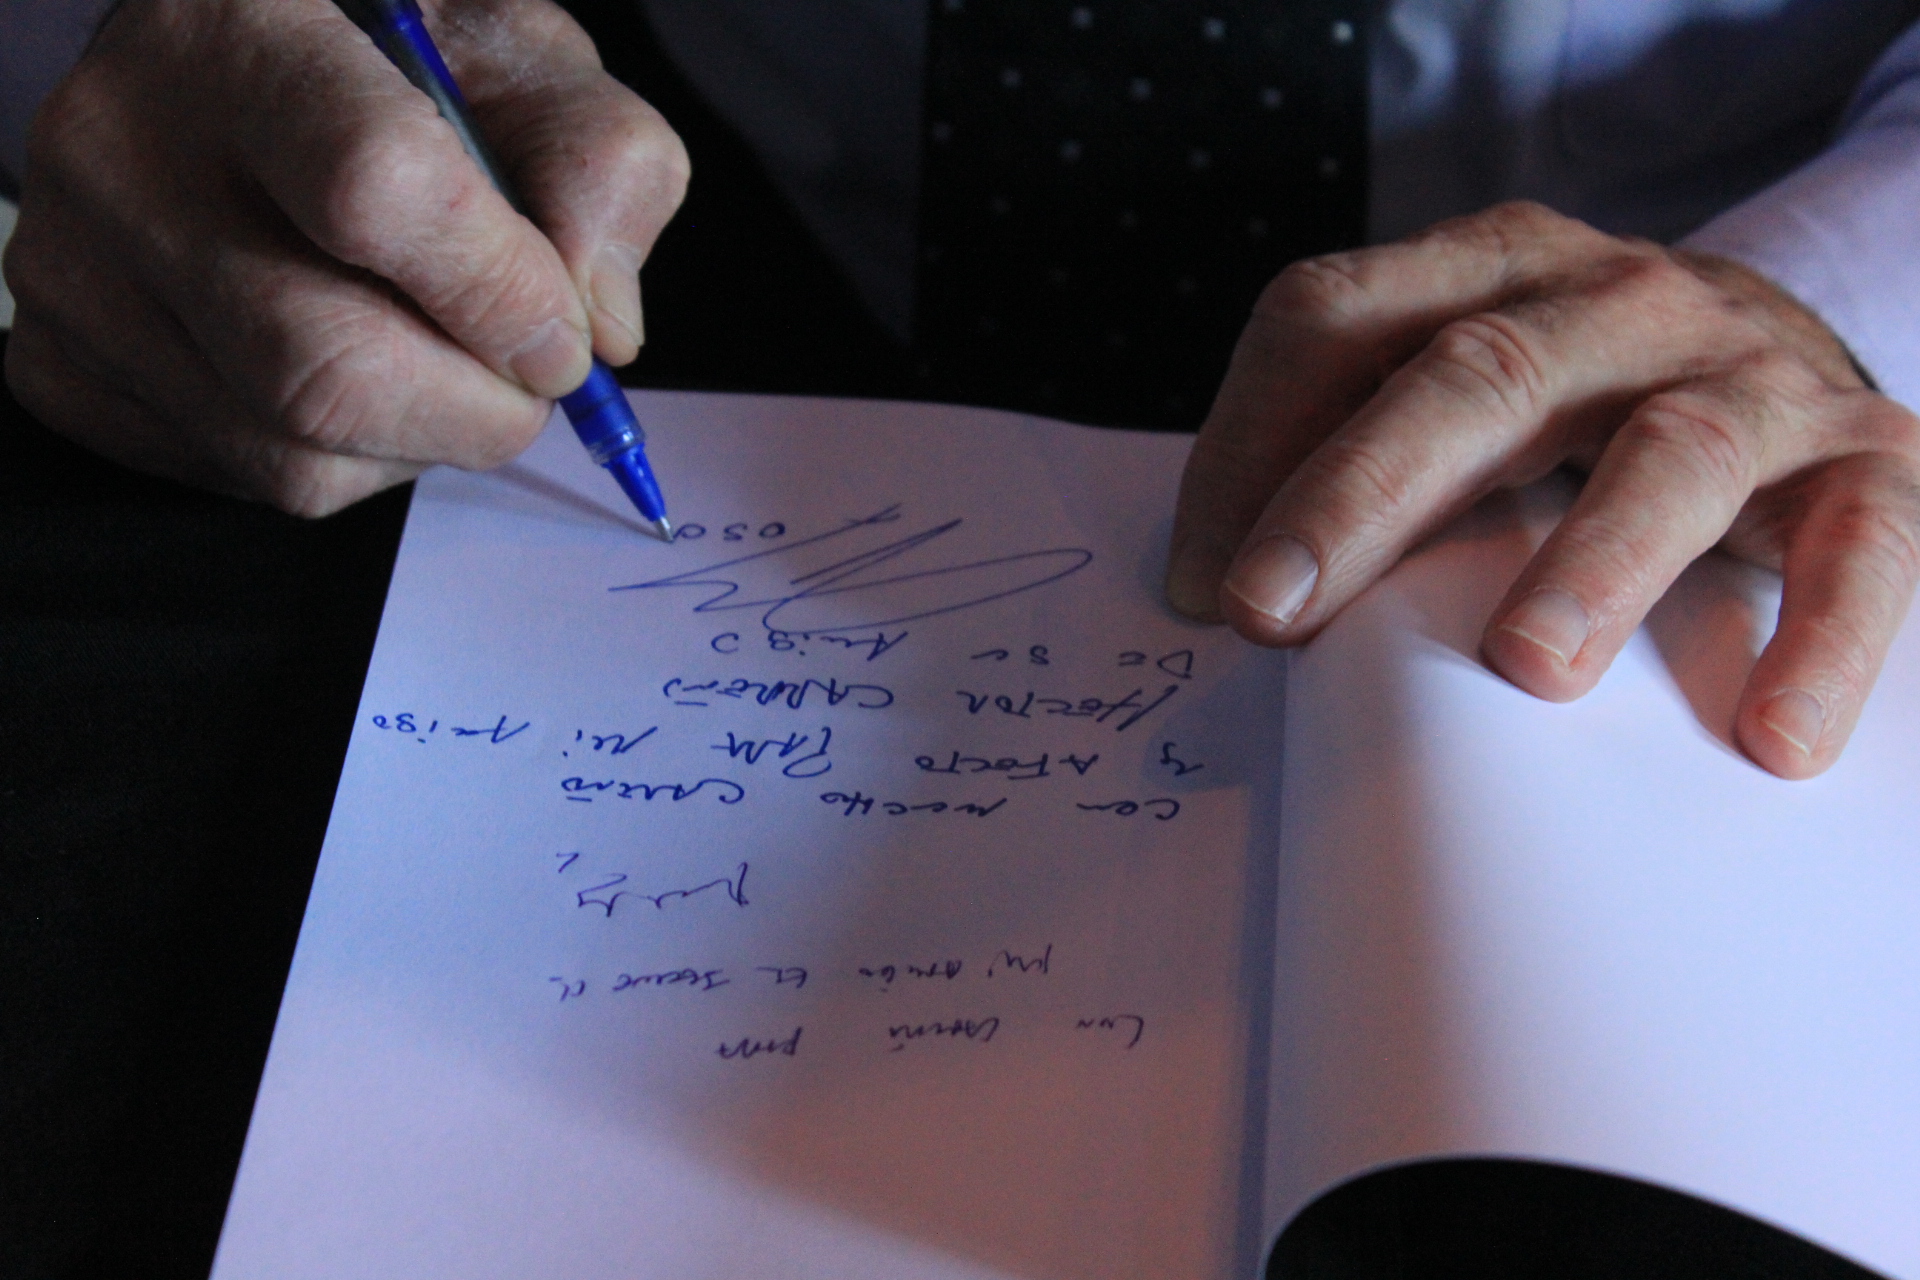 Con cariño para
mi amigo el
Con mucho cariño
y afecto para mi amigo
Hector Carreño
De su amigo
oso